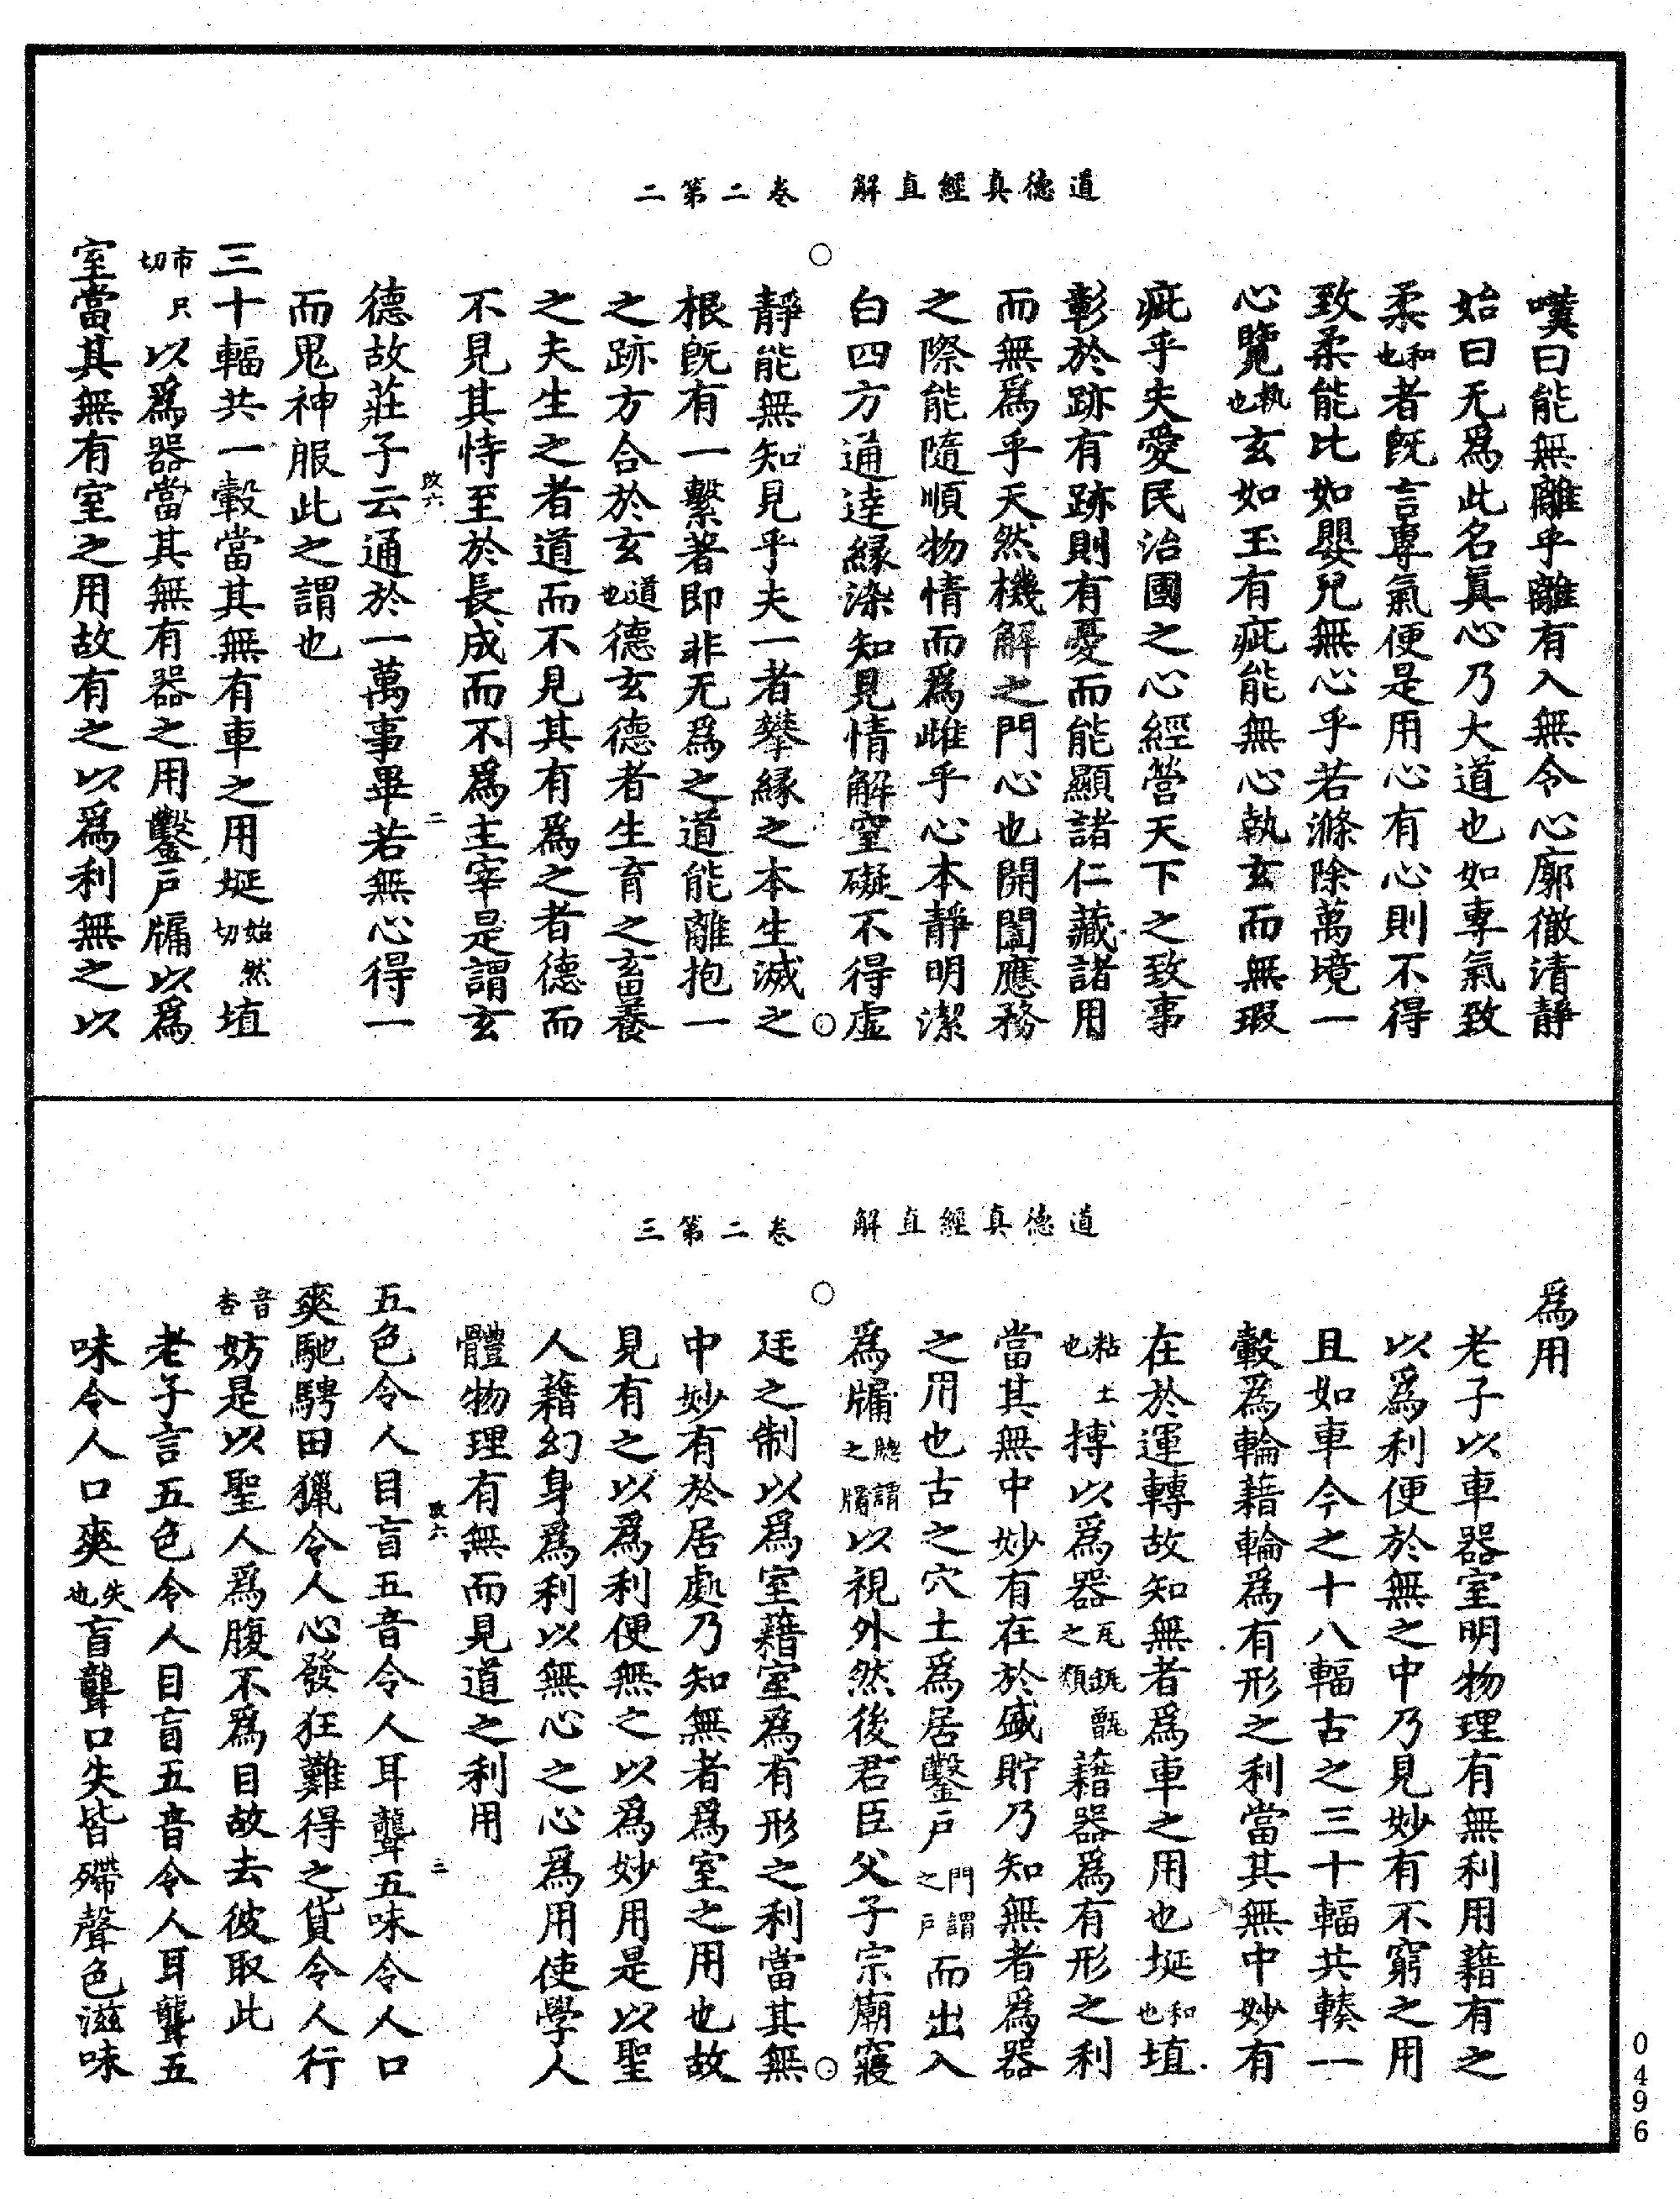 道德真經直解　卷二第二
噗曰能無離乎離有入無令心廓徹清靜
始曰无爲此名眞心乃大道也如專氣致
柔和也者旣言專氣便是用心有心則不得
致柔能比如嬰兒無心乎若滌除萬境一
心覽執也玄如玉有疵能無心執玄而無瑕
疵乎夫愛民治國之心經營天下之致事
彰於跡有跡則有憂而能顯諸仁藏諸用
而無爲乎天然機解之門心也開闔應務
之際能隨順物情而爲雌乎心本靜明潔
白四方通達緣染知見情解窒礙不得虛
靜能無知見乎夫一者攀緣之本生滅之
根旣有一繫著即非无爲之道能離抱一
之跡方合於玄道也德玄德者生育之畜養
之夫生之者道而不見其有爲之者德而
不見其恃至於長成而不爲主宰是謂玄
德故莊子云通於一萬事畢若無心得一
而鬼神服此之謂也
三十輻共一轂當其無有車之用埏始然切埴
市只切以爲器當其無有器之用鑿戶牖以爲
室當其無有室之用故有之以爲利無之以
改六　二
道德真經直解　卷二第三
爲用
老子以車器室明物理有無利用藉有之
以爲利便於無之中乃見妙有不窮之用
且如車今之十八輻古之三十輻共轃一
轂爲輪藉輪爲有形之利當其無中妙有
在於運轉故知無者爲車之用也埏和也埴
粘土也摶以爲器瓦缾甑之類藉器爲有形之利
當其無中妙有在於盛貯乃知無者爲器
之用也古之穴土爲居鑿戶門謂之戶而出入
爲牖牕謂之牖以視外然後君臣父子宗廟寢
廷之制以爲室藉室爲有形之利當其無
中妙有於居處乃知無者爲室之用也故
見有之以爲利便無之以爲妙用是以聖
人藉幻身爲利以無心之心爲用使學人
體物理有無而見道之利用
五色令人目盲五音令人耳聾五味令人口
爽馳騁田獵令人心發狂難得之貨令人行
音杏妨是以聖人爲腹不爲目故去彼取此
老子言五色令人目盲五音令人耳聾五
味令人口爽失也盲聾口失皆殢聲色滋味
改六　三
0496